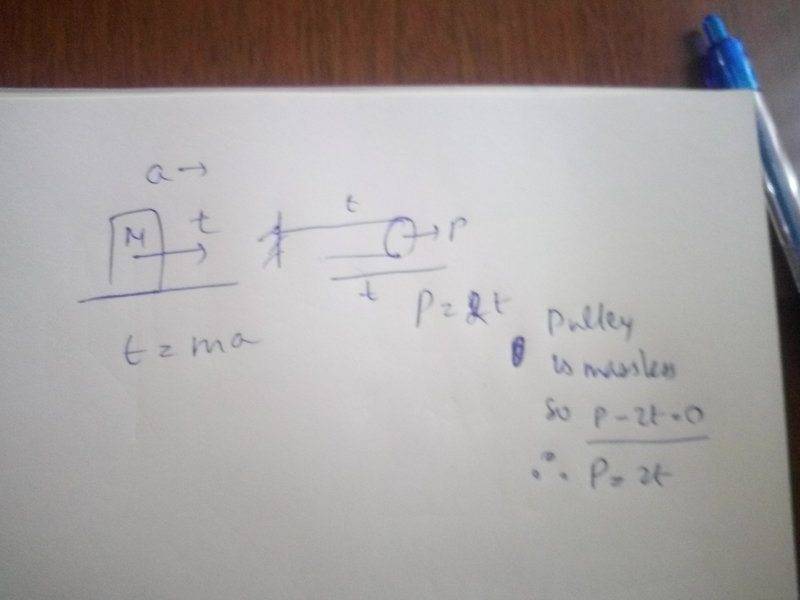 a →
M t
t P
t
P = 2t
t = ma
Pulley
is massless
so P - 2t = 0
∴ P = 2t